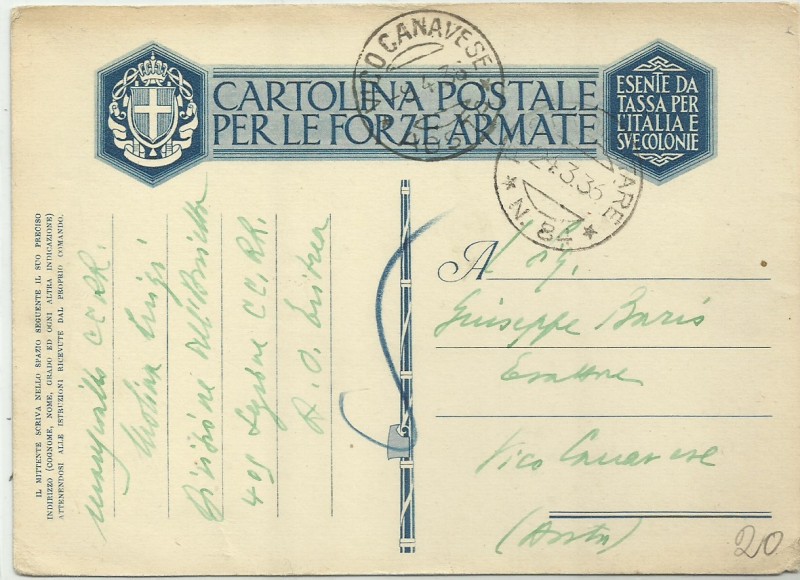 CARTOLINA POSTALE
PER LE FORZE ARMATE
ESENTE DA
TASSA PER
L'ITALIA E
SVE COLONIE
VICO CANAVESE
24.3.36
N. 84
IL MITTENTE SCRIVA NELLO SPAZIO SEGUENTE IL SUO PRECISO
INDIRIZZO (COGNOME, NOME, GRADO ED OGNI ALTRA INDICAZIONE)
ATTENENDOSI ALLE ISTRUZIONI RICEVUTE DAL PROPRIO COMANDO.
CC. RR.
Molina Luigi
Divisione
409 Legione CC. RR.
A. O. Eritrea
A Sig.
Giuseppe Baris
Esattore
Vico Canavese
(Aosta)
20